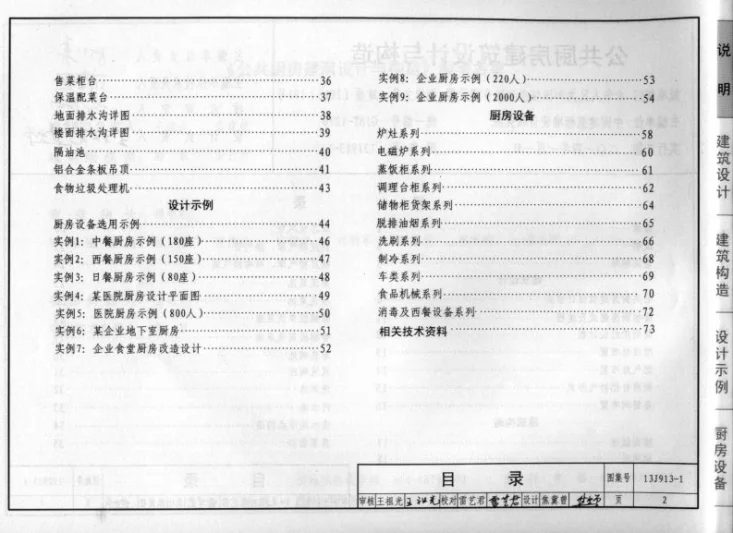 售菜柜台 36
保温配菜台 37
地面排水沟详图 38
楼面排水沟详图 39
隔油池 40
铝合金条板吊顶 41
食物垃圾处理机 43
设计示例
厨房设备选用示例 44
实例1: 中餐厨房示例（180座） 46
实例2: 西餐厨房示例（150座） 47
实例3: 日餐厨房示例（80座） 48
实例4: 某医院厨房设计平面图 49
实例5: 医院厨房示例（800人） 50
实例6: 某企业地下室厨房 51
实例7: 企业食堂厨房改造设计 52
实例8: 企业厨房示例（220人） 53
实例9: 企业厨房示例（2000人） 54
厨房设备
炉灶系列 58
电磁炉系列 60
蒸饭柜系列 61
调理台柜系列 62
储物柜货架系列 64
脱排油烟系列 65
洗刷系列 66
制冷系列 68
车类系列 69
食品机械系列 70
消毒及西餐设备系列 72
相关技术资料 73
说明
建筑设计
建筑构造
设计示例
厨房设备
目 录 图集号 13J913-1
审核 王祖光 校对 雷艺君 设计 焦冀曾 页 2